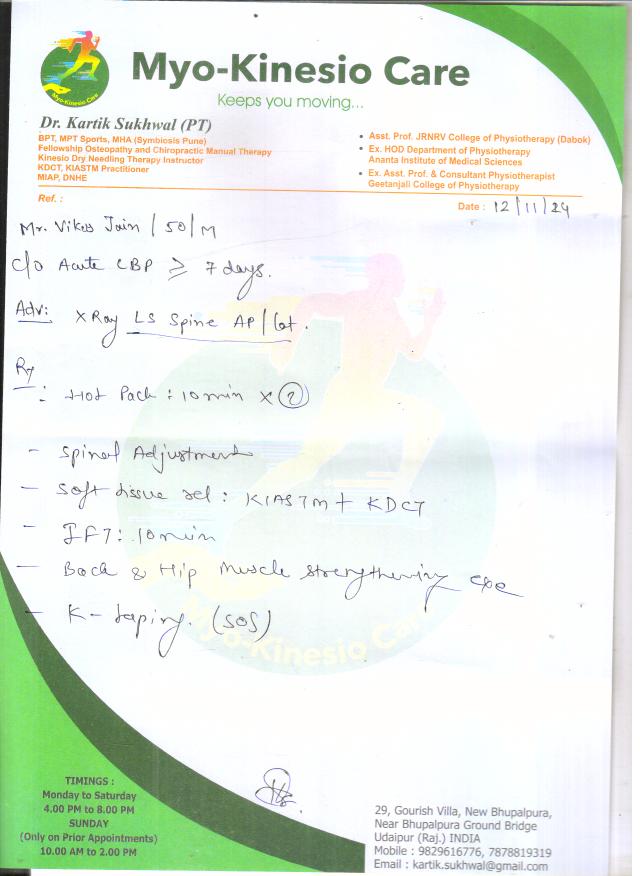 Myo-Kinesio Care
Myo-Kinesio Care
Keeps you moving...
Dr. Kartik Sukhwal (PT)
BPT, MPT Sports, MHA (Symbiosis Pune)
Fellowship Osteopathy and Chiropractic Manual Therapy
Kinesio Dry Needling Therapy Instructor
KDCT, KIASTM Practitioner
MIAP, DNHE
• Asst. Prof. JRNRV College of Physiotherapy (Dabok)
• Ex. HOD Department of Physiotherapy
Ananta Institute of Medical Sciences
• Ex. Asst. Prof. & Consultant Physiotherapist
Geetanjali College of Physiotherapy
Ref. :
Date : 12/11/24
Mr. Vikas Jain / 50/M
c/o Acute LBP ≥ 7 days.
Adv: X Ray LS Spine AP/Lat.
Rx
: Hot Pack : 10 min x 2
- Spinal Adjustment
- Soft tissue rel : KIASTM + KDCT
- IFT : 10 min
- Back & Hip Muscle strengthening exe
- K-taping. (SOS)
Myo-Kinesio Care
TIMINGS :
Monday to Saturday
4.00 PM to 8.00 PM
SUNDAY
(Only on Prior Appointments)
10.00 AM to 2.00 PM
29, Gourish Villa, New Bhupalpura,
Near Bhupalpura Ground Bridge
Udaipur (Raj.) INDIA
Mobile : 9829616776, 7878819319
Email : kartik.sukhwal@gmail.com